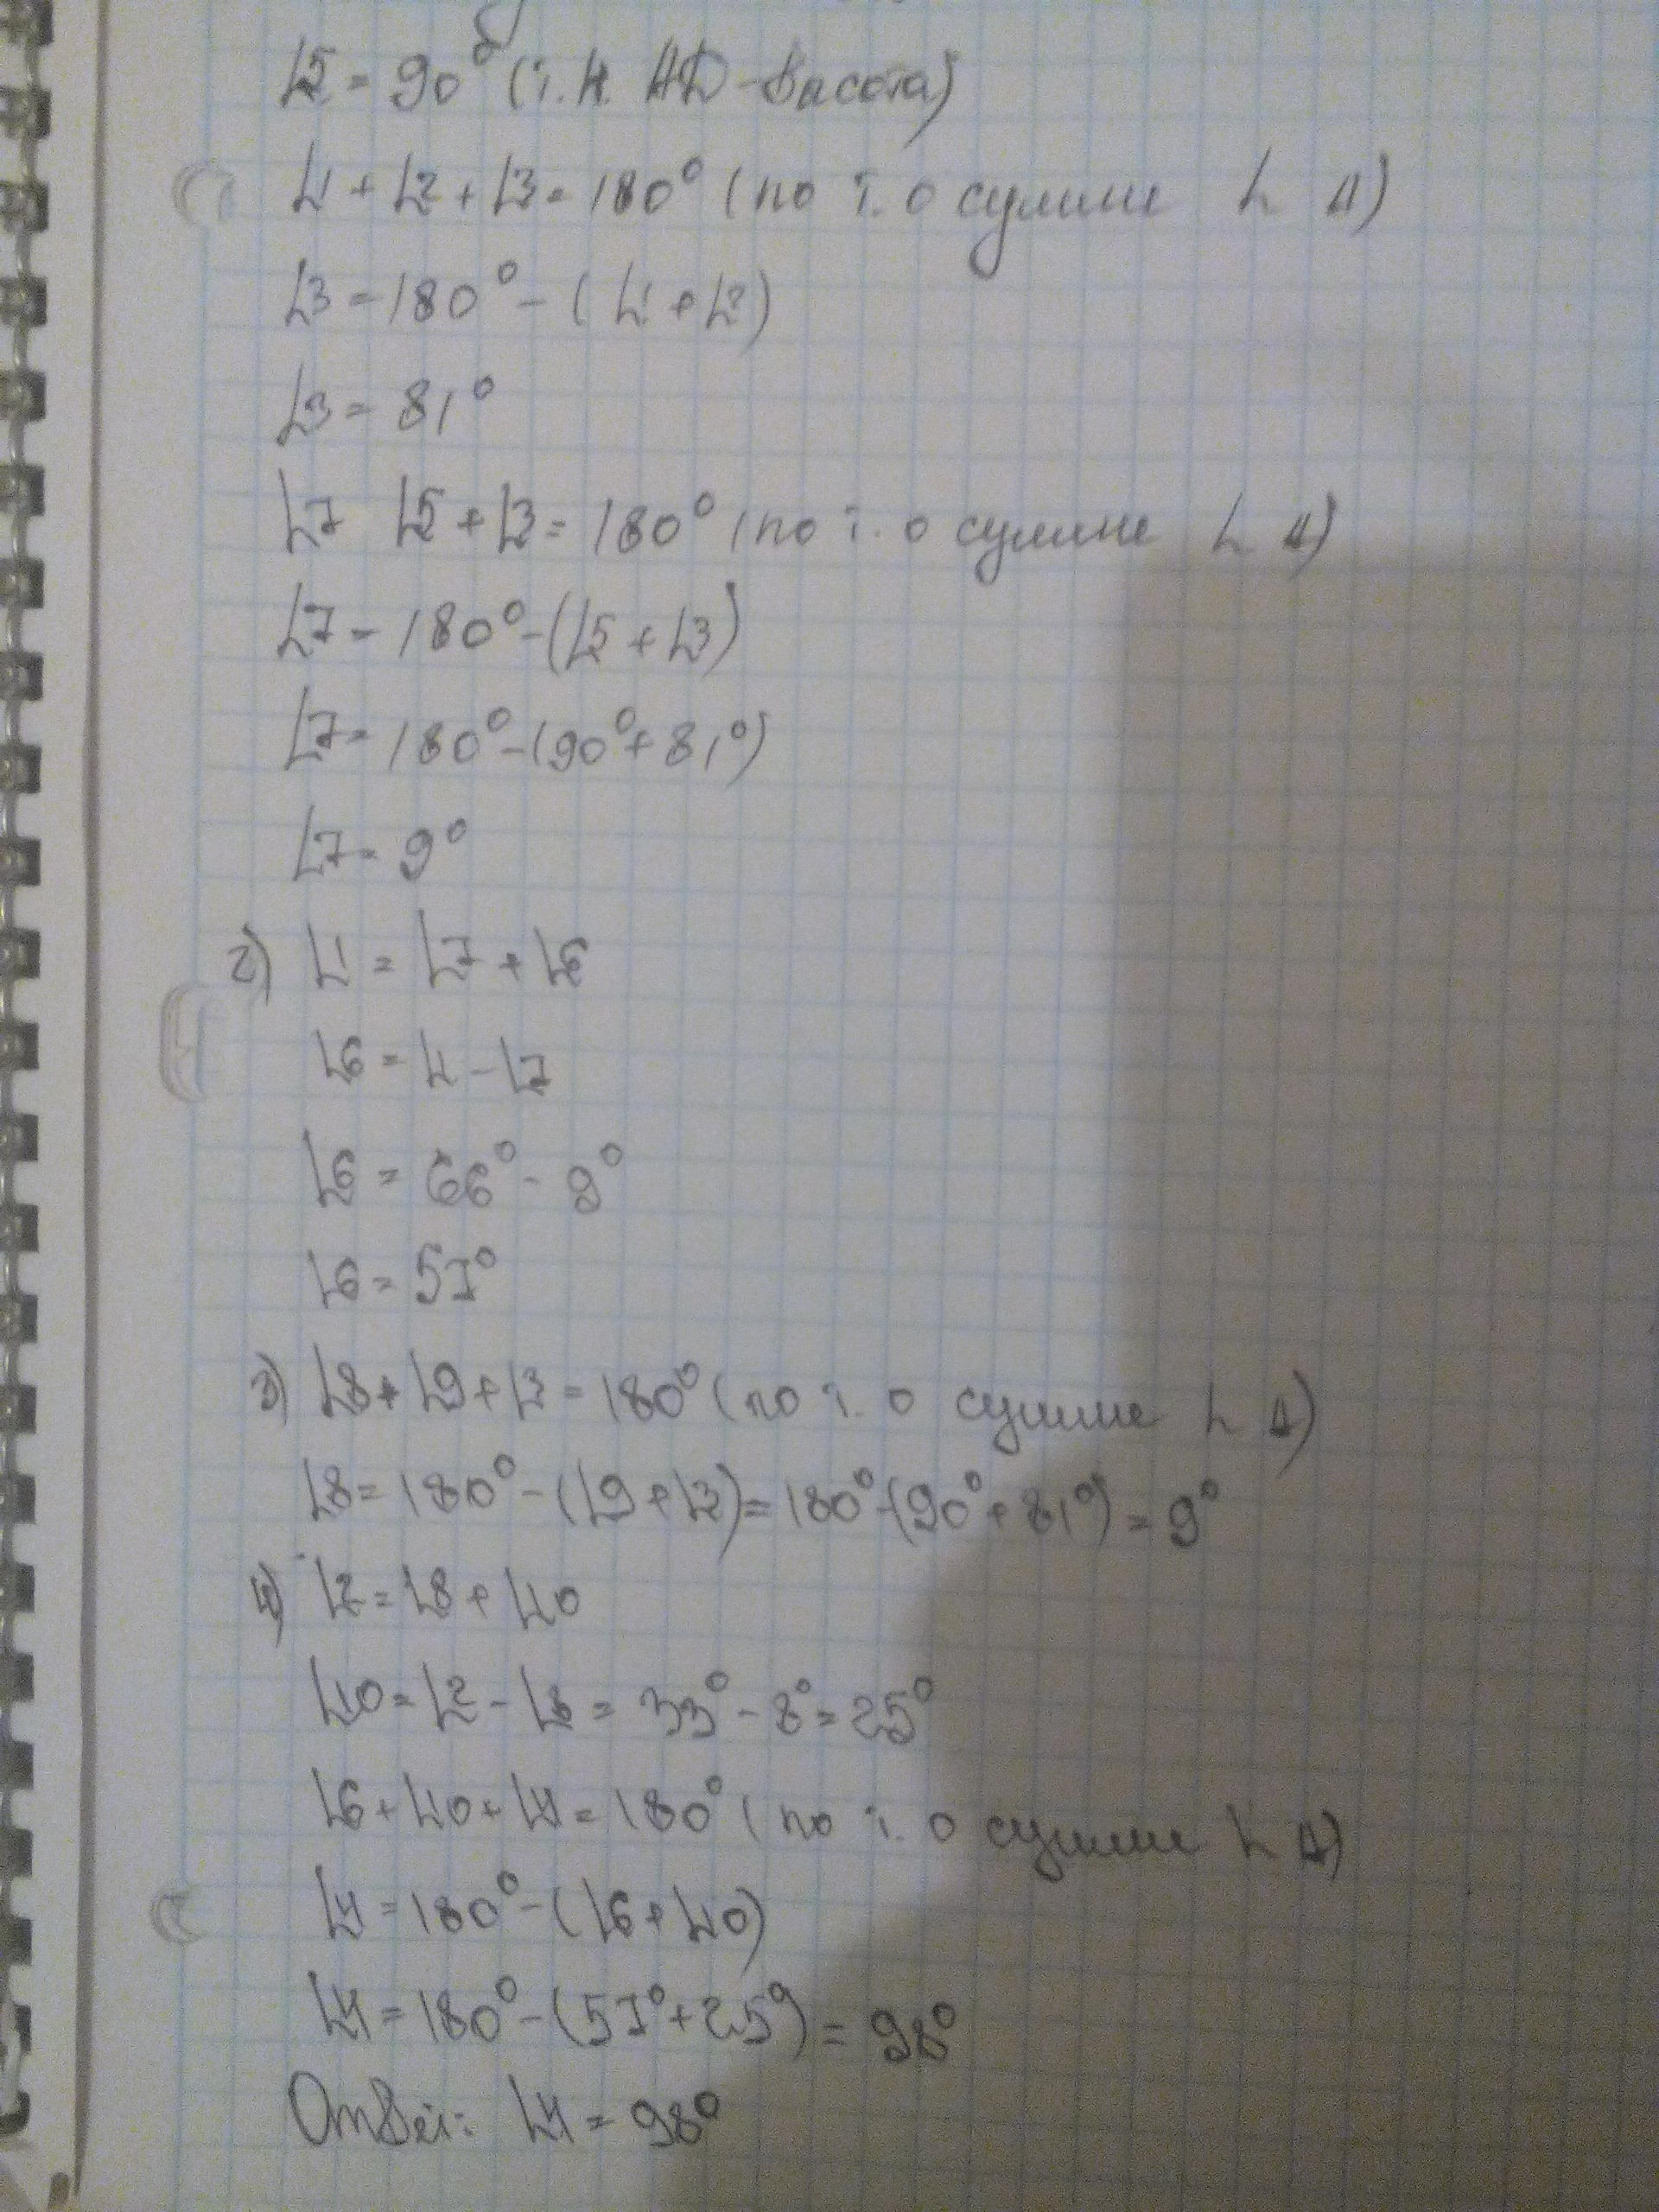 ∠5 = 90° (т.к. AD - высота)
∠1 + ∠2 + ∠3 = 180° (по т. о сумме ∠ Δ)
∠3 = 180° - (∠1 + ∠2)
∠3 = 81°
∠7 ∠5 + ∠3 = 180° (по т. о сумме ∠ Δ)
∠7 = 180° - (∠5 + ∠3)
∠7 = 180° - (90° + 81°)
∠7 = 9°
2) ∠1 = ∠7 + ∠6
∠6 = ∠1 - ∠7
∠6 = 66° - 9°
∠6 = 57°
3) ∠8 + ∠9 + ∠3 = 180° (по т. о сумме ∠ Δ)
∠8 = 180° - (∠9 + ∠3) = 180° - (90° + 81°) = 9°
4) ∠2 = ∠8 + ∠10
∠10 = ∠2 - ∠8 = 33° - 8° = 25°
∠6 + ∠10 + ∠4 = 180° (по т. о сумме ∠ Δ)
∠4 = 180° - (∠6 + ∠10)
∠4 = 180° - (57° + 25°) = 98°
Ответ: ∠4 = 98°